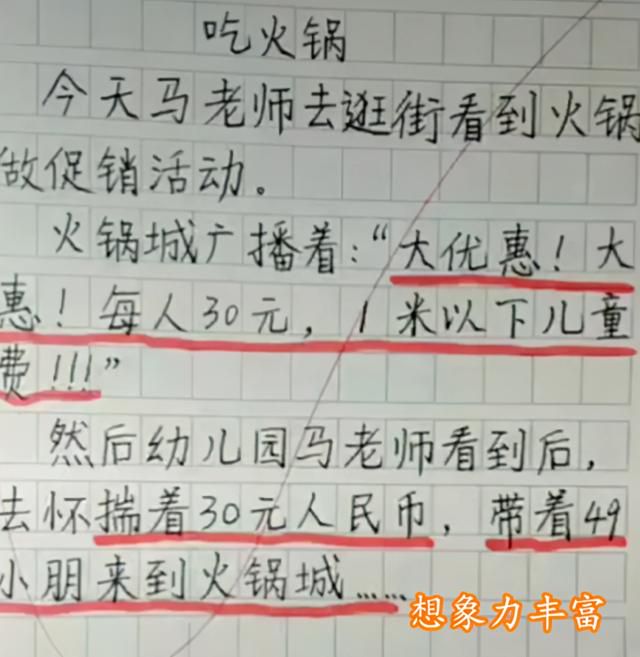 吃火锅
今天马老师去逛街看到火锅
做促销活动。
火锅城广播着:“大优惠!大
惠!每人30元,1米以下儿童
费!!!”
然后幼儿园马老师看到后,
去怀揣着30元人民币,带着49
小朋来到火锅城……
想象力丰富